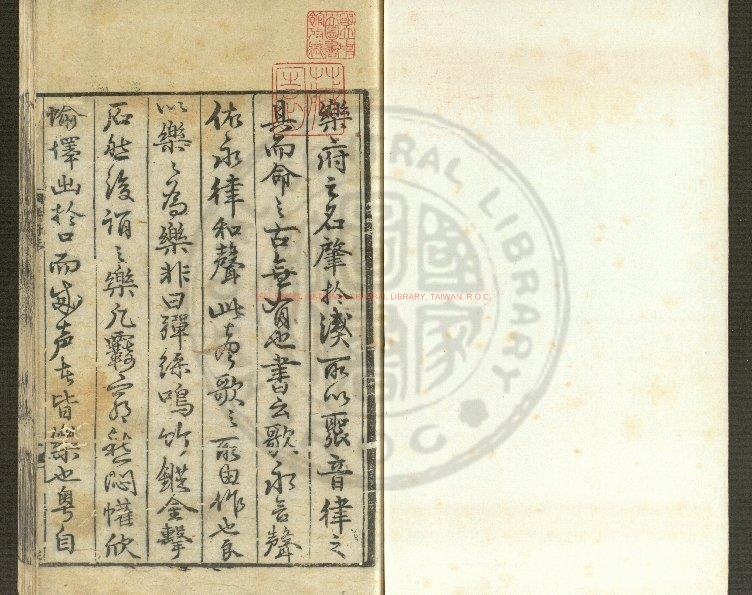 樂府之名肇於漢所以聚音律之
具而命之古無有也書云歌永言聲
依永律和聲此歌之所由作也良
以樂之為樂非曰彈絲鳴竹鏦金擊
石然後謂之樂凡愁悶懽欣
愉懌出於口而成声者皆樂也粵自
CENTRAL LIBRARY, TAIWAN, R.O.C.
RAL LIBRARY